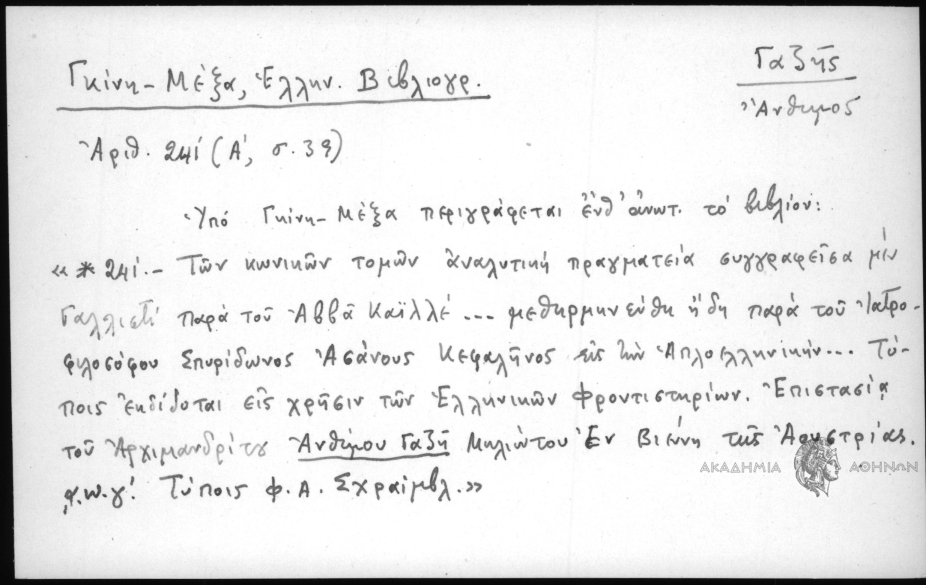 Γκίνη - Μέξα, Ἑλλην. Βιβλιογρ.
Γαζῆς
Ἄνθιμος
Ἀριθ. 241 (Α', σ. 39)
Ὑπό Γκίνη-Μέξα περιγράφεται ἐνθ' ἀνωτ. τό βιβλίον:
«* 241.- Τῶν κωνικῶν τομῶν ἀναλυτική πραγματεία συγγραφεῖσα μέν
Γαλλιστί παρά τοῦ Ἀββᾶ Καϊλλέ ... μεθηρμηνεύθη ἤδη παρά τοῦ Ἰατρο-
φιλοσόφου Σπυρίδωνος Ἀσάνους Κεφαλῆνος εἰς τήν Ἁπλοελληνικήν... Τύ-
ποις ἐκδίδοται εἰς χρῆσιν τῶν Ἑλληνικῶν Φροντιστηρίων. Ἐπιστασίᾳ
τοῦ Ἀρχιμανδρίτου Ἀνθίμου Γαζῆ Μηλιώτου Ἐν Βιέννῃ τῆς Ἀουστρίας.
͵α.ω.γ'. Τύποις Φ. Α. Σχραίμβλ.»
ΑΚΑΔΗΜΙΑ ΑΘΗΝΩΝ